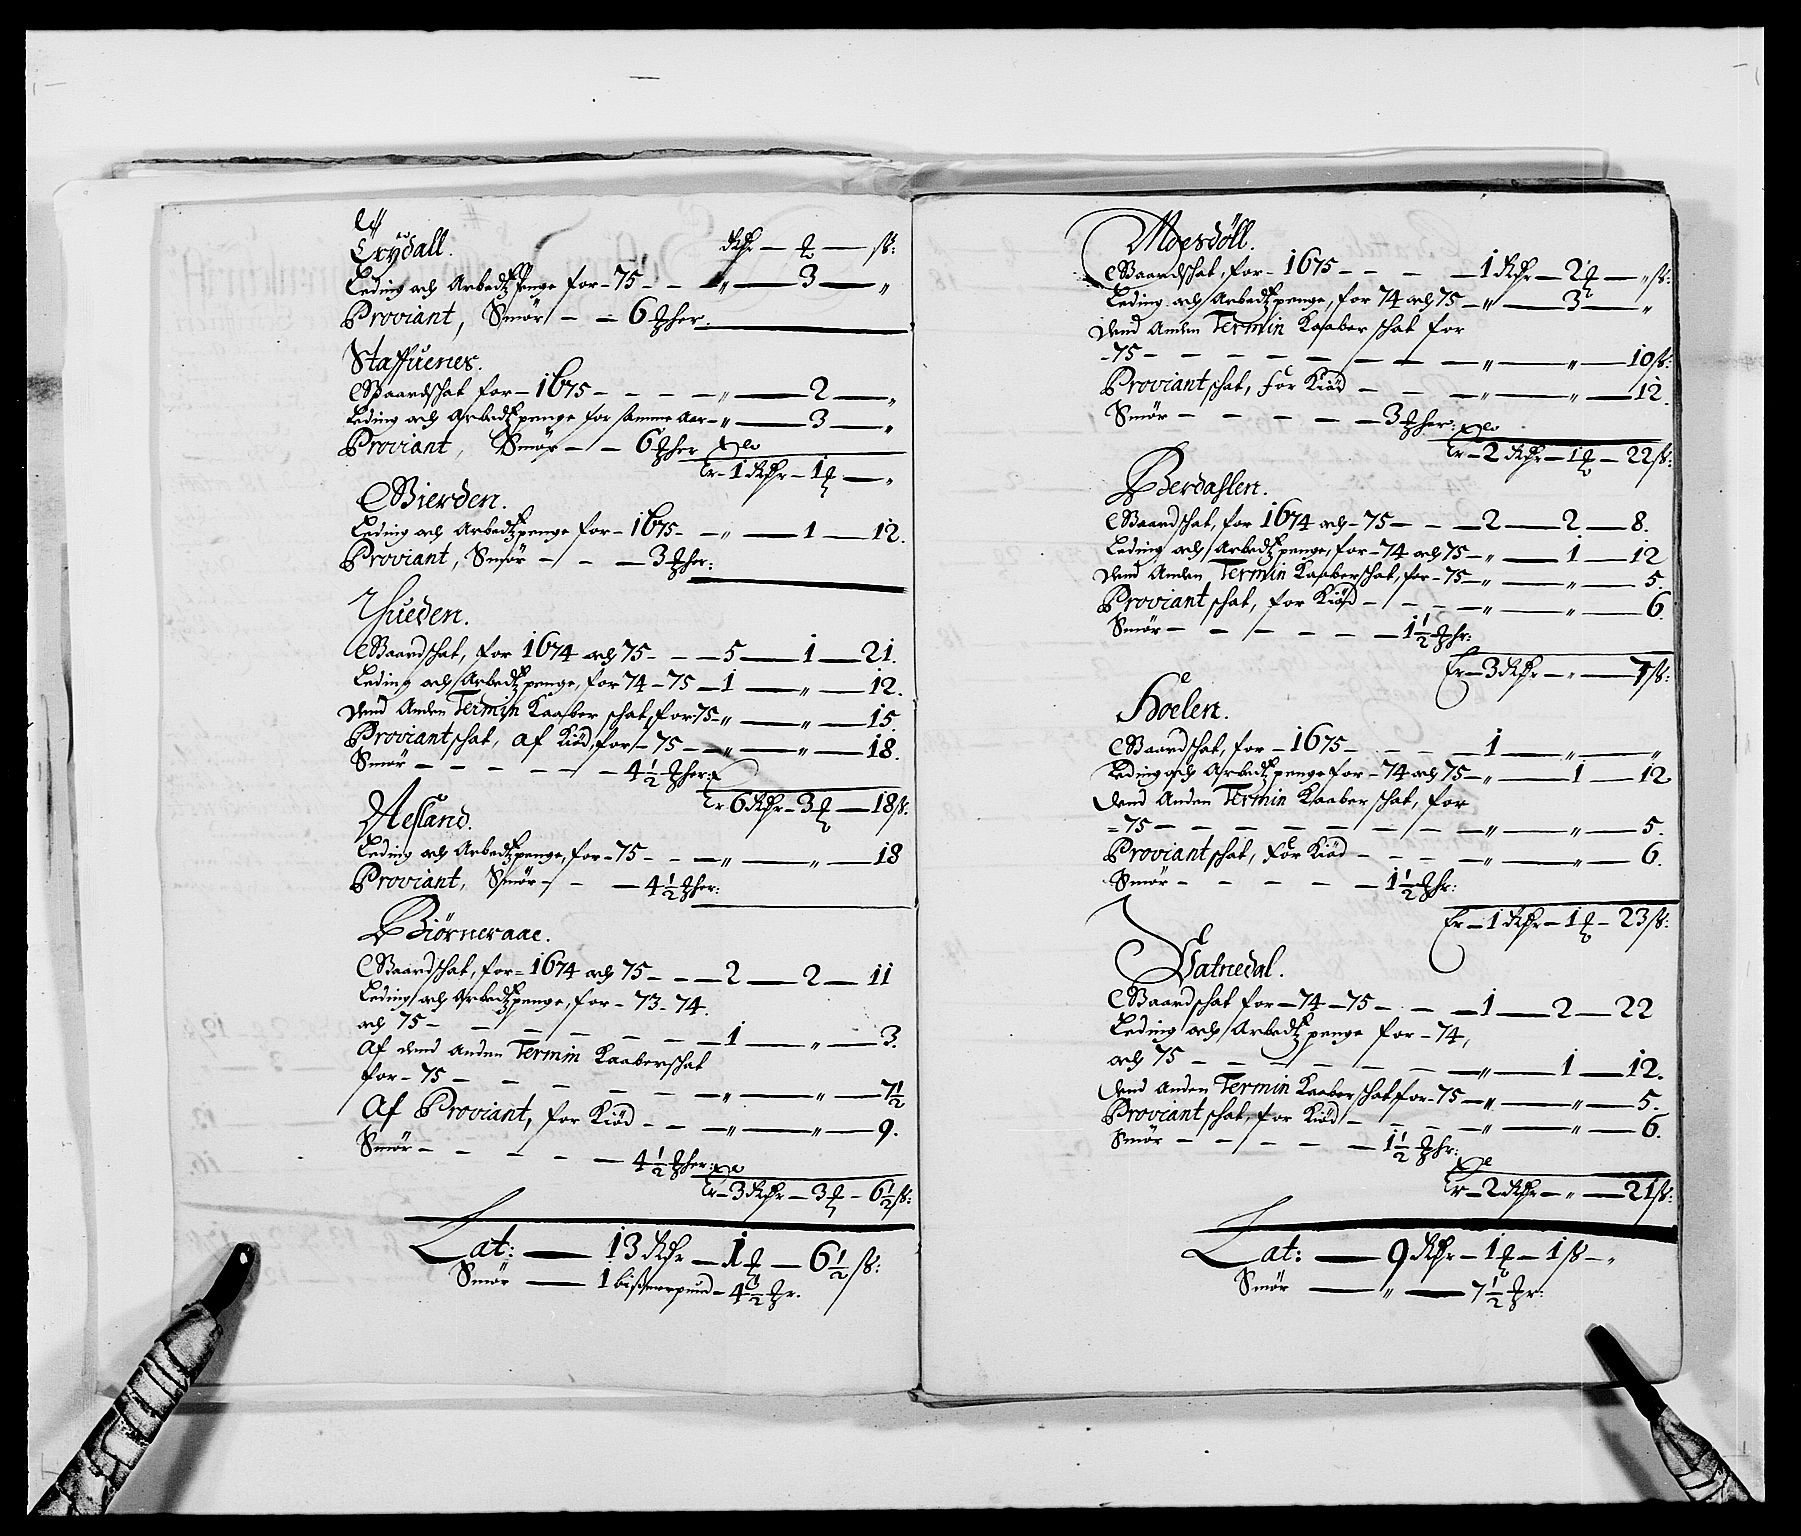 Trydall. Rdr — ℔ — ß:
Leding och Arbedtzpenge for – 75 – – „ — 3 — „
Proviant, Smør – – 6 ℔her.
Staffuenes.
Baardschat for – 1675 – – – – „ — 2 — „
Leding och Arbedtzpenge for samme Aar – „ — 3 — „
Proviant, Smør – – 6 ℔her
Er – 1 Rdr – 1 — „
Bierden.
Leding och Arbedtzpenge for – 1675 – – „ — 1 — 12.
Proviant, Smør – – — 3 ℔her:
Thueden.
Baardschat, for 1674 och 75 – – — 5 — 1 — 21.
Leding och Arbedtzpenge, for 74 – 75 — 1 — „ — 12.
Dend Anden Termin Kaaber schat, for 75 – „ — „ — 15
Proviantschat, af Kiød, for – 75 – — „ — „ — 18.
Smør – – – – – – 4½ ℔her:
Er 6 Rdr – 3 — 18 ß.
Aesland.
Leding och Arbedtzpenge, for – 75 – – — „ — „ — 18
Proviant, Smør – – — 4½ ℔her:
Biørneraae.
Baardschat, for – 1674 och 75 – – — 2 — 2 — 11
Leding och Arbedtzpenge, for – 73 – 74.
och 75 – – – – – — 1 — „ — 3.
Af dend Anden Termin Kaaberschat
for – 75 – – – – – – „ — „ — 7½
Af Proviant, for Kiød – – – „ — „ — 9.
Smør – – – – – — 4½ ℔her:
Er – 3 Rdr – 3 – 6½ ß:
Lat: — 13 Rdr – 1 — 6½ ß:
Smør — 1 bißmerpund – 4½ ℔r.
Moesdøll.
Baardschat, for – 1675 – – – — 1 Rdr – 2 — „ ß:
Leding och Arbedtzpenge, for 74 och 75 – „ — 3 — „
Dend Anden Termin Kaaber schat for
– 75 – – – – – – – – „ — „ — 10 ß:
Proviantschat, for Kiød – – – „ — „ — 12.
Smør – – – – – 3 ℔her:
Er – 2 Rdr – 1 – 22 ß:
Berdahlen.
Baardschat, for 1674 och – 75 – – — 2 — 2 — 8.
Leding och Arbedtzpenge, for – 74 och 75 – „ — 1 — 12
Dend Anden Termin Kaaberschat, for – 75 – „ — „ — 5.
Proviantschat, for Kiød – – – – „ — „ — 6
Smør – – – – – — 1½ ℔hr:
Er – 3 Rdr – „ — 7 ß:
Hoelen.
Baardschat, for – 1675 – – – — 1 — „ — „
Leding och Arbedtzpenge for – 74 och 75 – „ — 1 — 12
Dend Anden Termin Kaaber schat, for
= 75 – – – – – – – – „ — „ — 5.
Proviantschat, for Kiød – – – – „ — „ — 6.
Smør – – – – – 1½ ℔hr:
Er – 1 Rdr – 1 – 23 ß:
Vatnedal.
Baardschat for – 74 – 75 – – — 1 — 2 — 22
Leding och Arbedtzpenge for – 74,
och 75 – – – – – – – „ — 1 — 12.
Dend Anden Termin Kaaberschat for – 75 – „ — „ — 5.
Proviantschat, for Kiød – – – – „ — „ — 6.
Smør – – – – – 1½ ℔hr:
Er – 2 Rdr – „ — 21 ß:
Lat: — 9 Rdr – 1 – 1 ß – „
Smør — „ — 7½ ℔r: